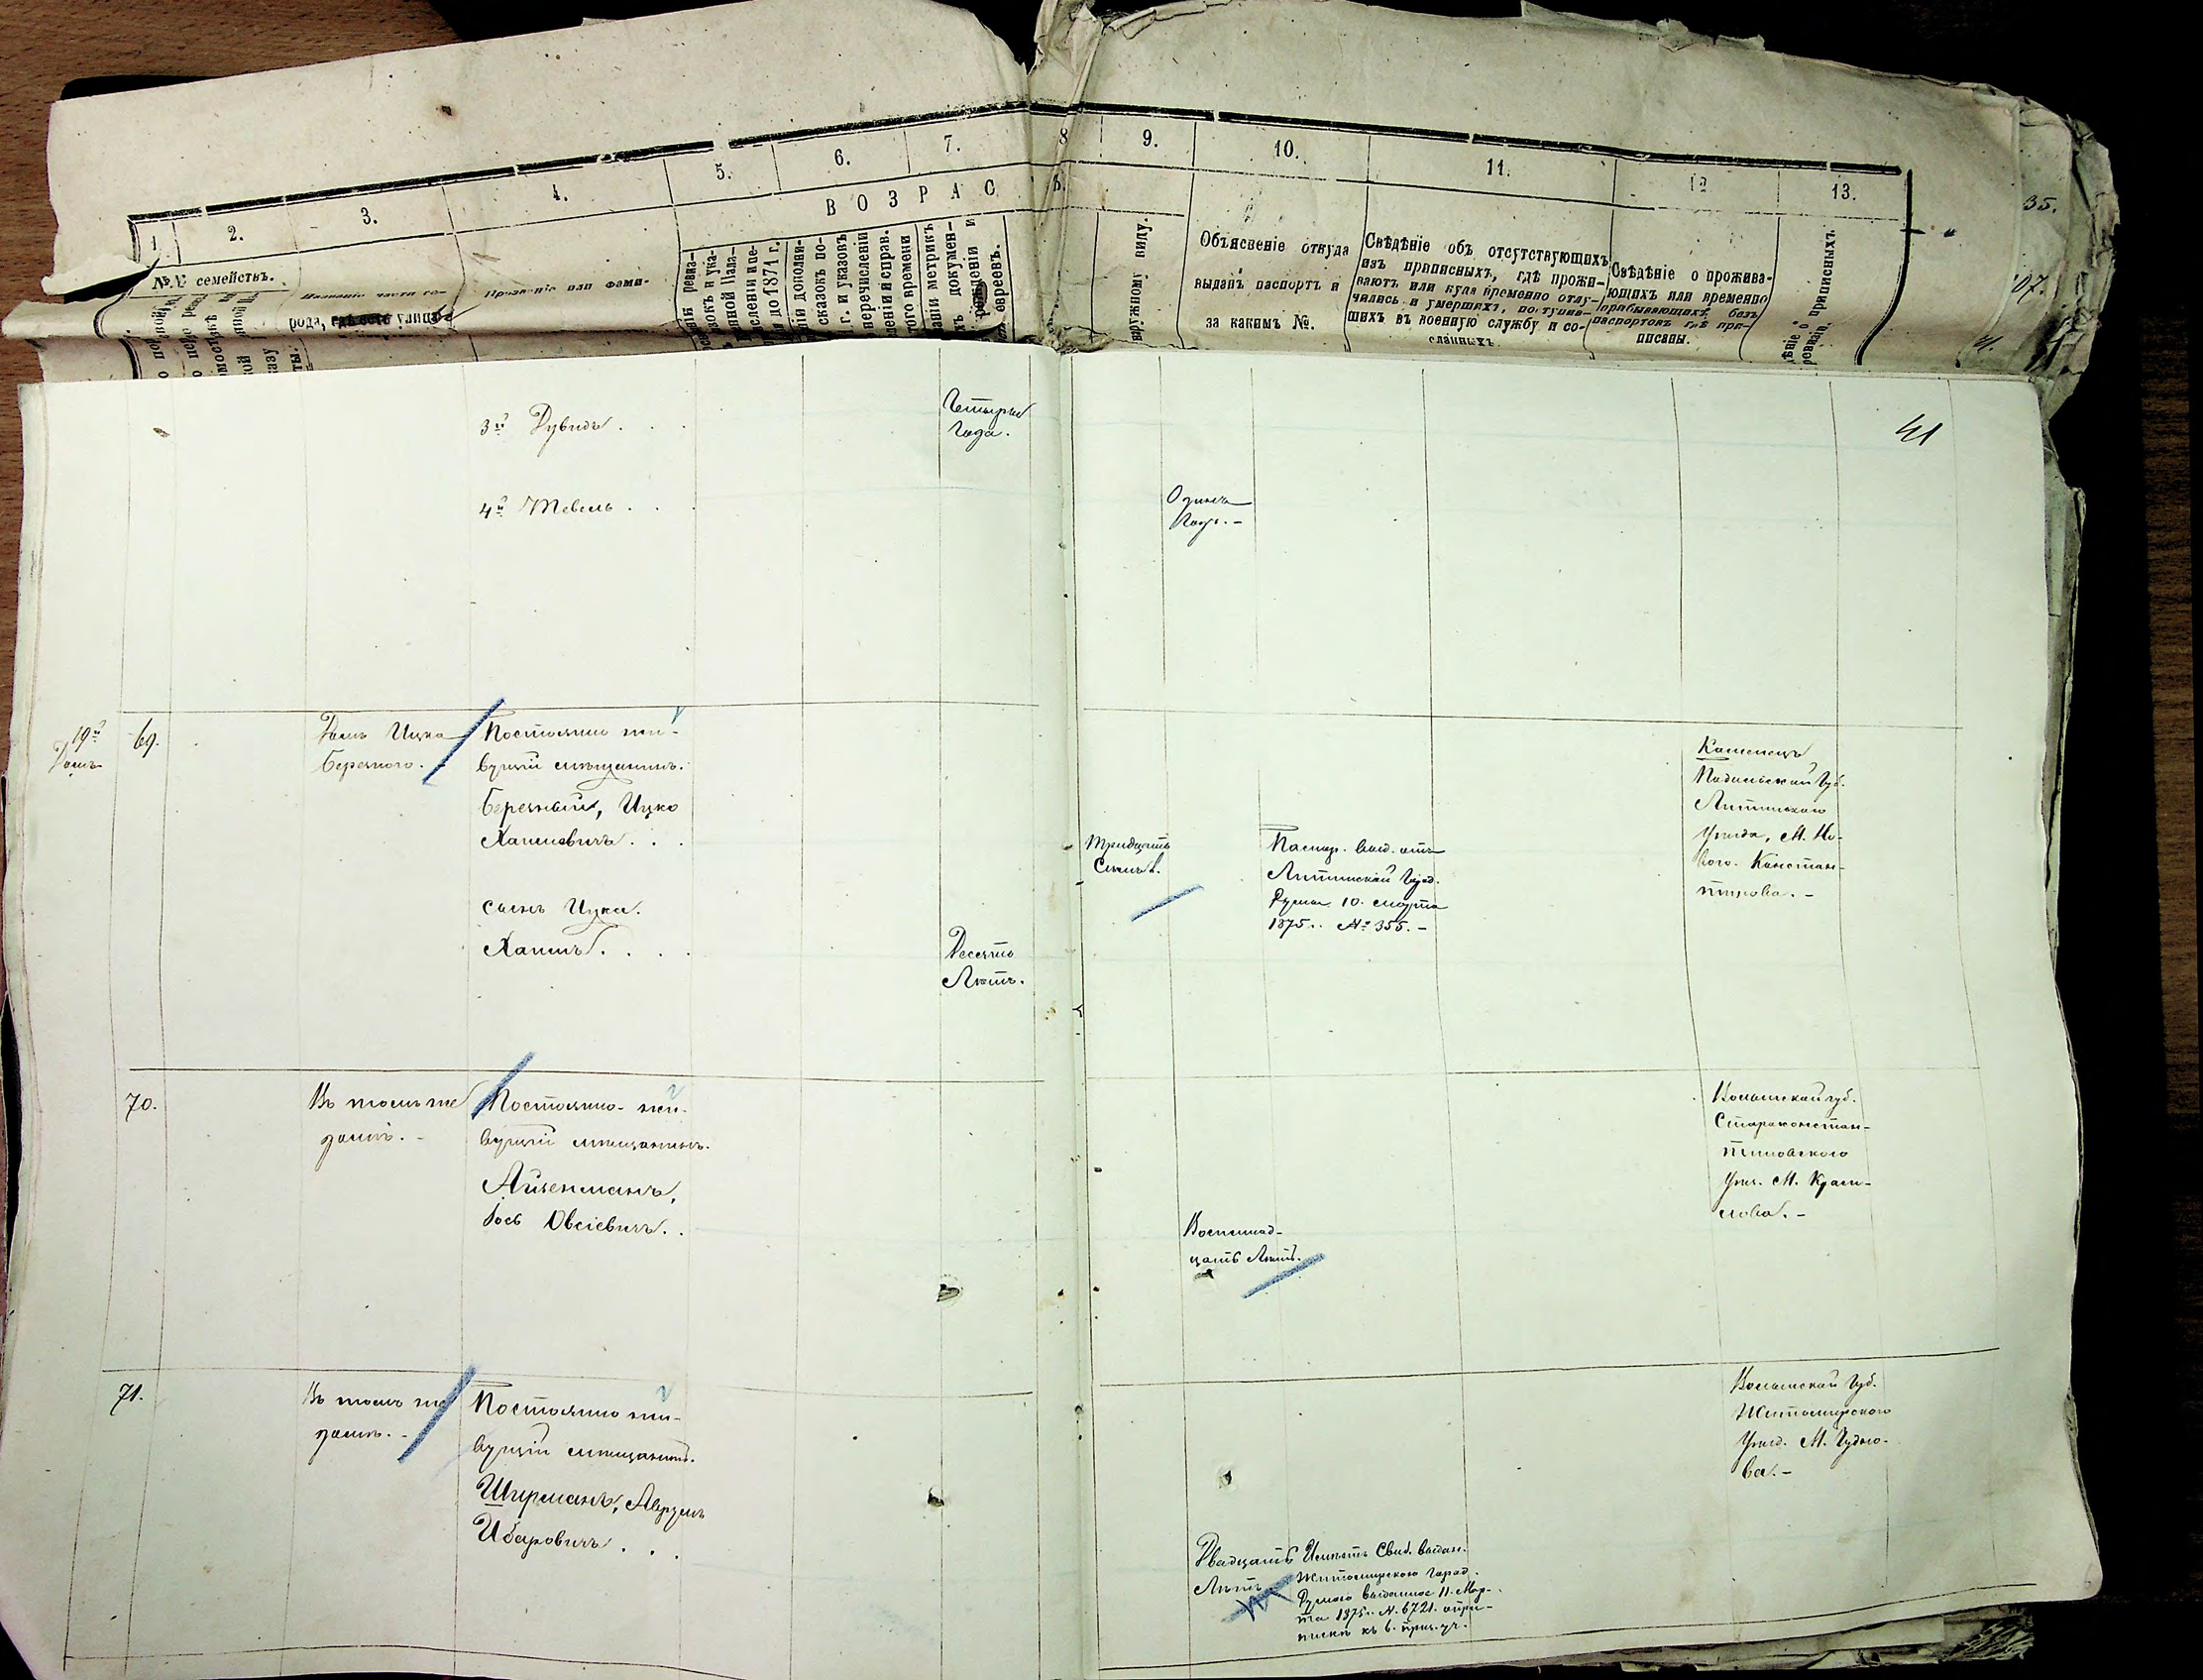 1. 2. 3. 4. 5. 6. 7. 8 9. 10. 11. 12 13.
35.
ВОЗРАС Ъ.
№№ семействъ.
Названіе части го-
рода,
Прозваніе или фами-
до 1871 г.
сказокъ по-
г. и указовъ
перечисленіи
метрикъ
докумен-
евреевъ.
наружному виду.
Объясненіе откуда
выданъ паспортъ и
за какимъ №.
Свѣдѣніе объ отсутствующихъ
изъ приписныхъ, гдѣ прожи-
ваютъ или куда временно отлу-
чились и умершихъ, поступив-
шихъ въ военную службу и со-
сланныхъ
Свѣдѣніе о прожива-
ющихъ или временно
пребывающихъ безъ
паспортовъ гдѣ при-
писаны.
приписныхъ.
107.
41
3й Дувидъ . . .
Четыре
Года.
4й Тевель . . .
Одинъ
Годъ. -
19й
Домъ
69.
Домъ Ицка
Беренаго. -
Постоянно жи-
вущій мѣщанинъ.
Береный, Ицко
Хаимовичъ . . .
Тридцать
Семь л.
Паспор. выд. отъ
Литинской Гор.
Думы 10. Марта
1875г. № 355. -
Каменецъ
Подольской Губ.
Литинскаго
Уѣзда, М. Но-
ваго. Констан-
тинова. -
Сынъ Ицка.
Хаимъ . . . .
Десять
Лѣтъ.
70.
Въ томъ же
домѣ. -
Постоянно- жи-
вущій мѣщанинъ.
Айзенманъ,
Іось Овсіевичъ . .
Восемнад-
цать Лѣтъ.
Волынской губ.
Староконстан-
тиновскаго
Уѣз. М. Краси-
лова. -
71.
Въ томъ же
домѣ. -
Постоянно жи-
вущій мѣщанинъ.
Ширманъ, Аврумъ
Двадцать
Лѣтъ
Имѣетъ Свид. выдан.
Житомирскою Город.
Думою выданное 11. Мар-
та 1875г. № 6721. о при-
пискѣ къ в. приз. уч.
Волынской Губ.
Житомирскаго
Уѣзд. М. Чудно-
ва. -